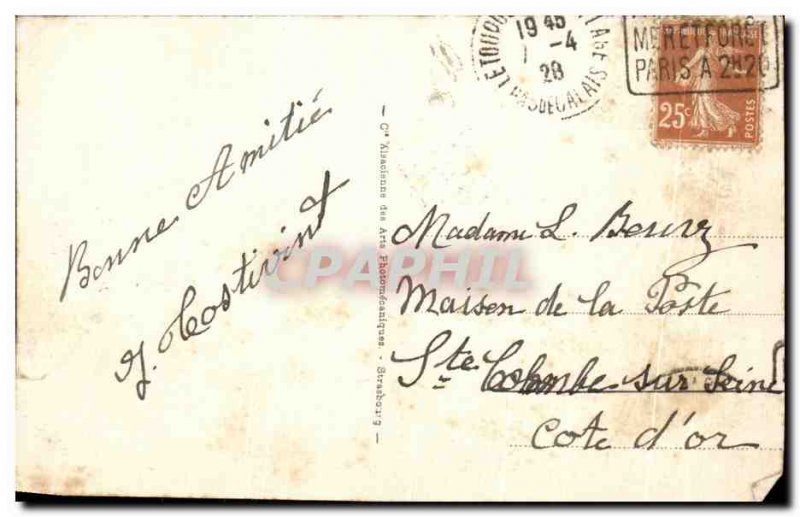 Bonne Amitié
J. Hostivint
Cie Alsacienne des Arts Photomécaniques. - Strasbourg
LE TOUQUET PLAGE
19 45
-4
28
PAS DE CALAIS
MER ET FORÊT
PARIS A 2H20
25c
POSTES
CPAPHIL
Madame L.
Maison de la Poste
Ste Colombe sur Seine
Cote d'or